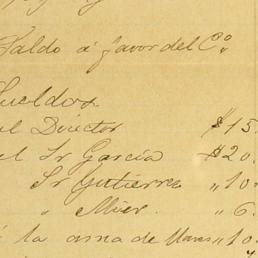 Saldo á favor del Co.
Sueldos
al Director $15.
al Sr Garcia $20.
Sr Gutierrez „10.
„ Mier. „6.
á la ama de llaves „10.